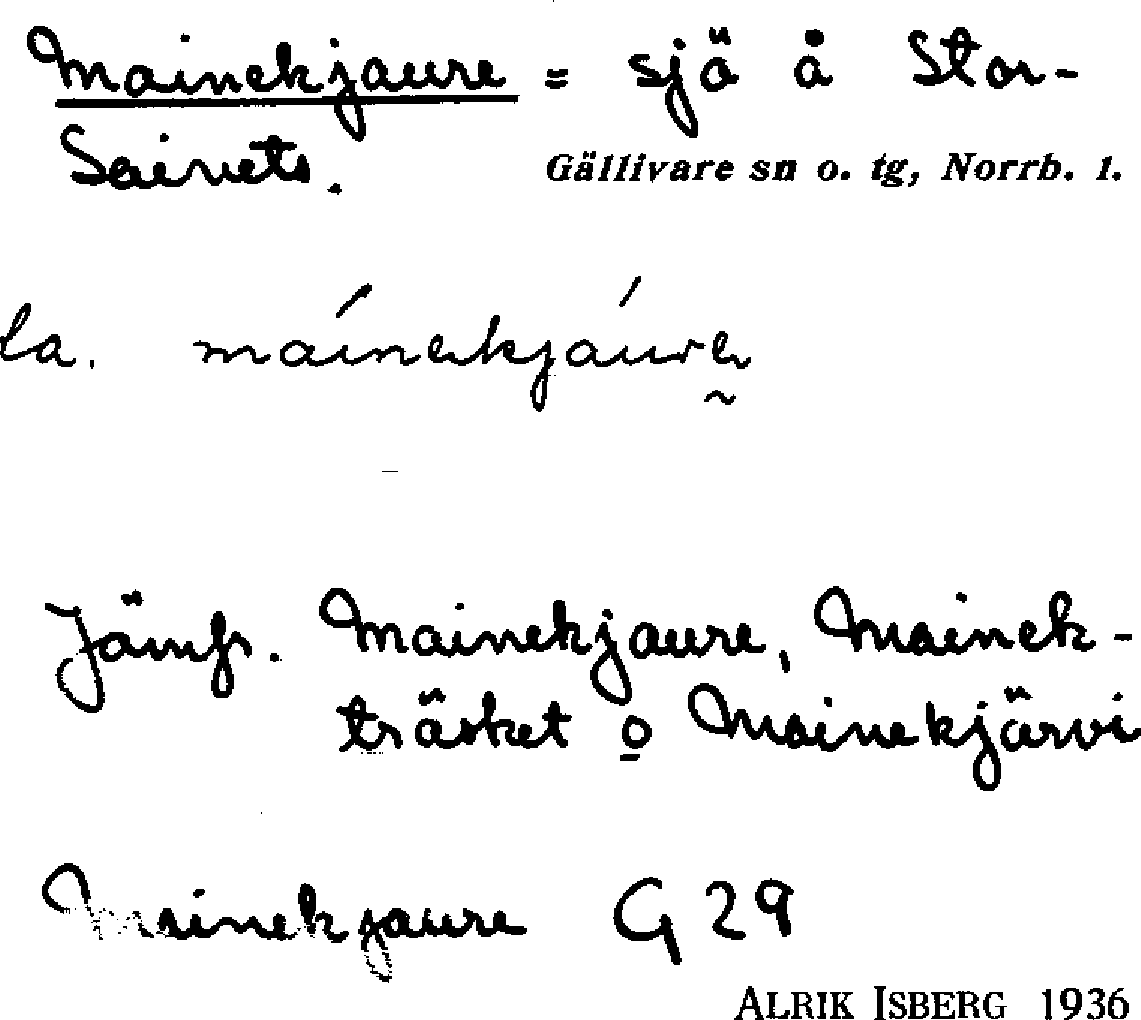 Mainekjaure = sjö å Stor-
Saivets.
Gällivare sn o. tg, Norrb. l.
la. máinekjáure
Jämfr. Mainekjaure, Mainek-
träsket o Mainekjärvi
Mainekjaure G 29
ALRIK ISBERG 1936